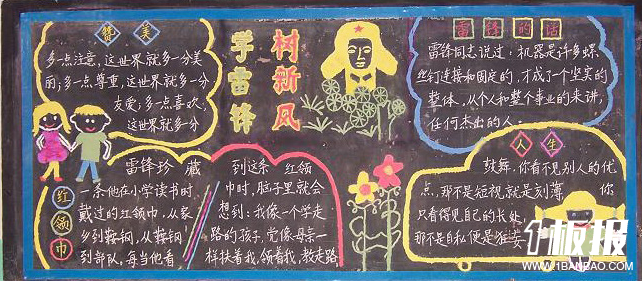 赞美
多点注意，这世界就多一分美
丽；多一点尊重，这世界就多一分
友爱；多一点喜欢，
这世界就多一分
学雷锋
树新风
雷锋的话
雷锋同志说过：机器是许多螺
丝钉连接和固定的，才成了个坚实的
整体，从个人和整个事业的来讲，
任何杰出的人
红领巾
雷锋珍藏
一条他在小学读书时
戴过的红领巾，从家
乡到鞍钢，从鞍钢
到部队，每当他看
到这条红领
巾时，脑子里就会
想到：我像一个学走
路的孩子，党像母亲一
样扶着我，领着我，教走路
人生
鼓舞，你看不见别人的优
点，那不是短视就是刻薄 你
只看得见自己的长处，
那不是自私便是狂妄
板报
WWW.1BANBAO.COM